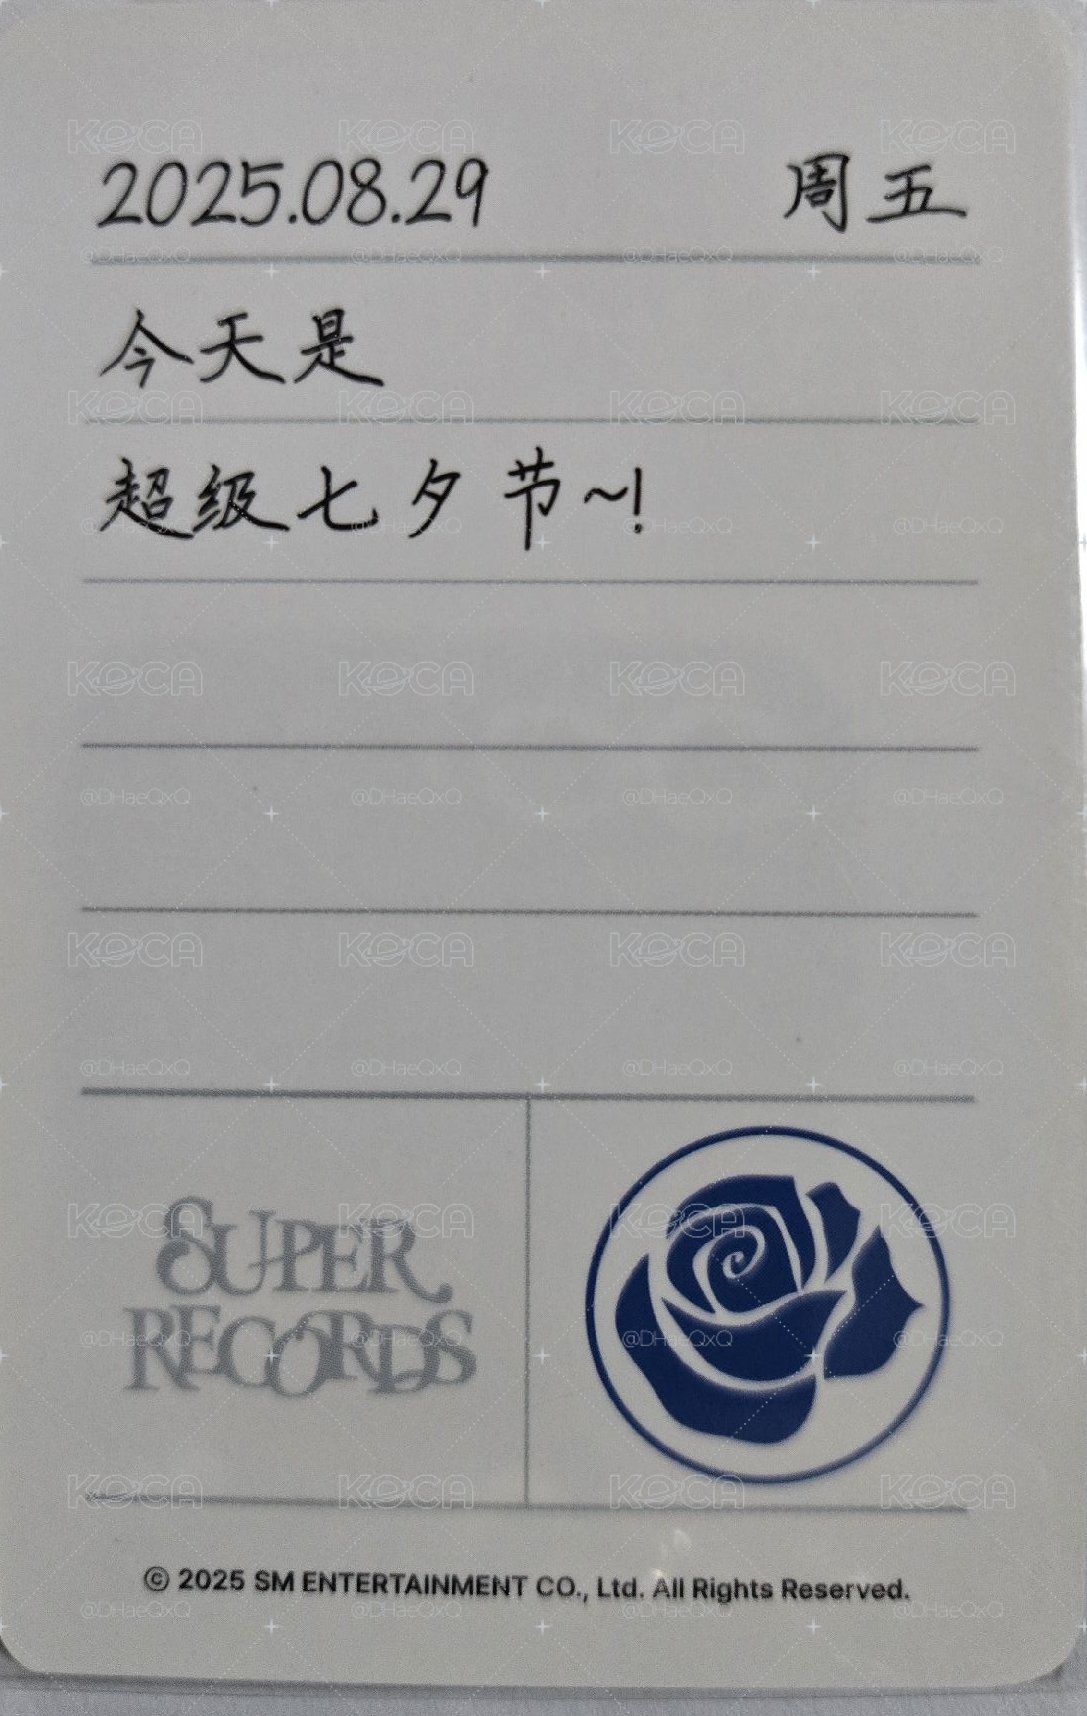 2025.08.29 周五
今天是
超级七夕节~!
SUPER
RECORDS
© 2025 SM ENTERTAINMENT CO., Ltd. All Rights Reserved.
KOCA
@DHaeQxQ